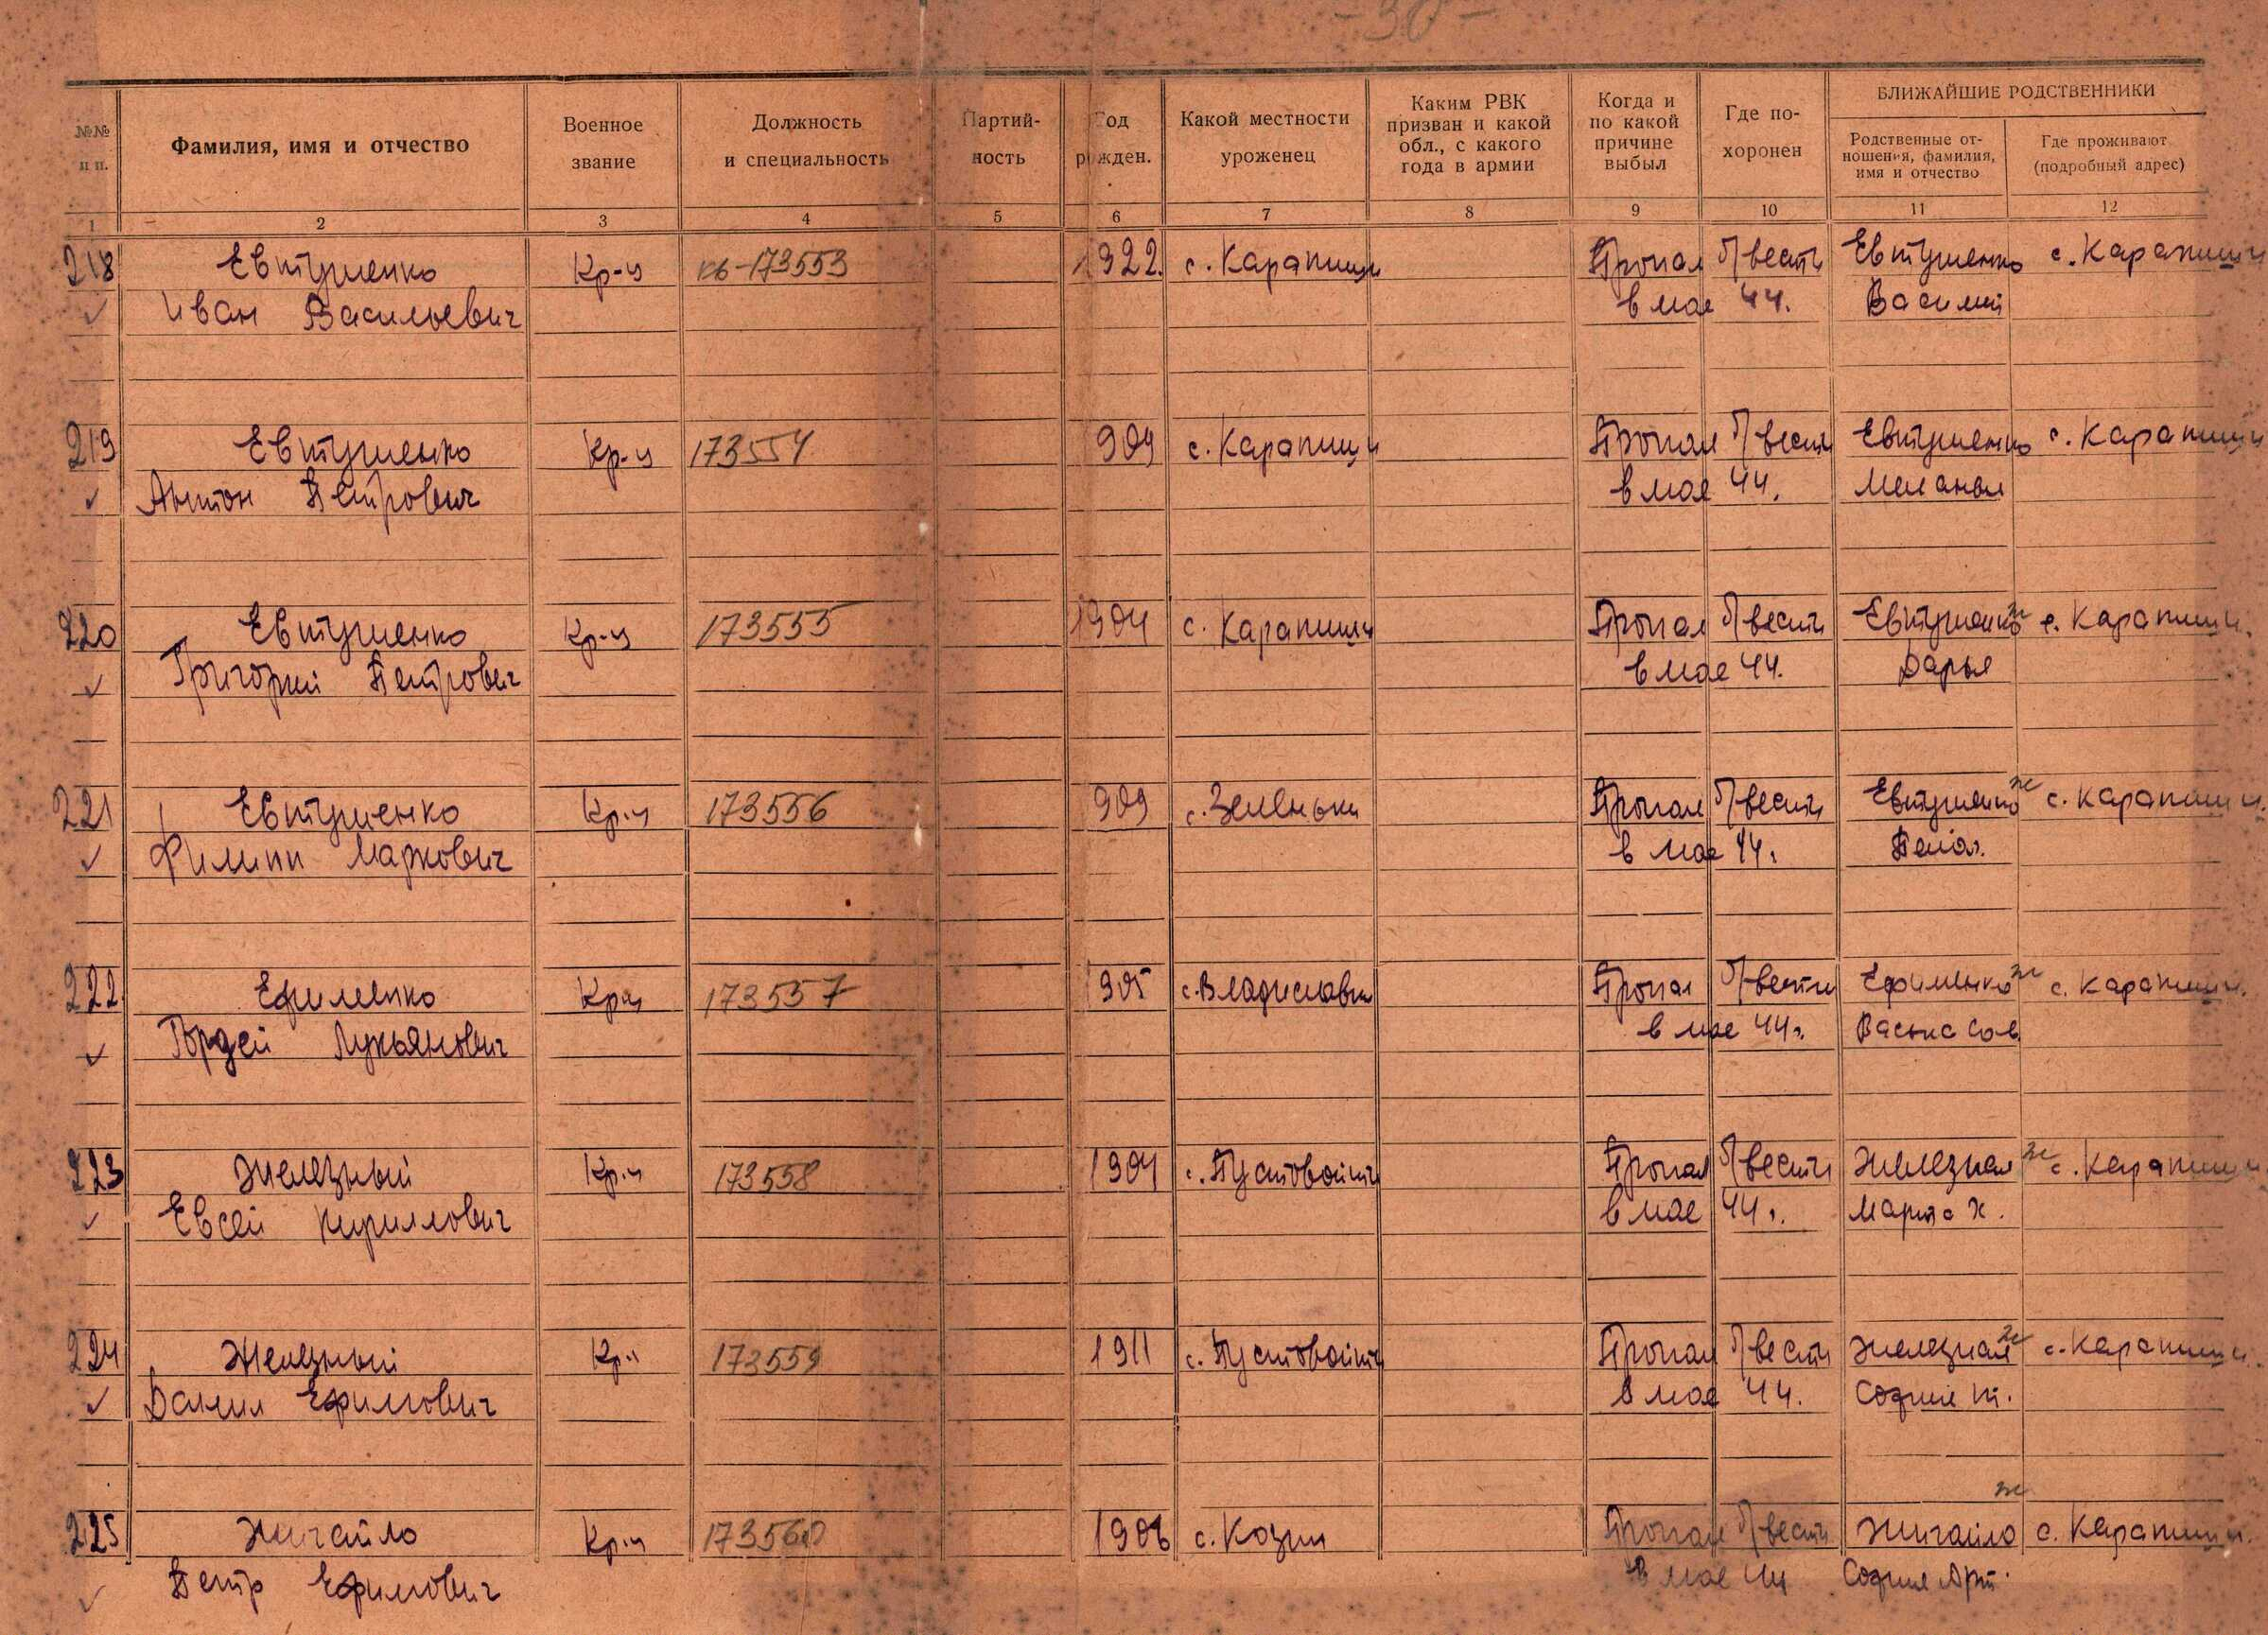 -30-
№№ п п.
Фамилия, имя и отчество
Военное звание
Должность и специальность
Партийность
Год рожден.
Какой местности уроженец
Каким РВК призван и какой обл., с какого года в армии
Когда и по какой причине выбыл
Где похоронен
БЛИЖАЙШИЕ РОДСТВЕННИКИ
Родственные отношения, фамилия, имя и отчество
Где проживают (подробный адрес)
1 2 3 4 5 6 7 8 9 10 11 12
218 Евтушенко Кр-ц кв-173553 1922. с. Карапиши Пропал б/вести Евтушенко с. Карапиши
Иван Васильевич в мае 44. Василий
219 Евтушенко Кр-ц 173554 904 с. Карапиши Пропал б/вести Евтушенко с. Карапиши
Антон Петрович в мае 44. Мелания
220 Евтушенко Кр-ц 173555 1904 с. Карапиши Пропал б/вести Евтушенко ж с. Карапиши.
Григорий Петрович в мае 44. Дарья
221 Евтушенко Кр-ц 173556 909 с. Зеленьки Пропал б/вести Евтушенко ж с. Карапиши.
Филипп Маркович в мае 44г.
222 Ефименко Кр-ц 173557 1905 с. Владиславка Пропал б/вести Ефименко ж с. Карапиши.
Гордей Лукьянович в мае 44г.
223 Железный Кр-ц 173558 1904 с. Пустовойты Пропал б/вести Железная ж с. Карапиши
Евсей Кириллович в мае 44г. Марта Х.
224 Железный Кр-ц 173559 1911 с. Пустовойты Пропал б/вести Железная ж с. Карапиши.
Данил Ефимович в мае 44. София
225 Жигайло Кр-ц 173560 1906 с. Козин Пропал б/вести Жигайло ж с. Карапиши.
Петр Ефимович в мае 44 София Арт.